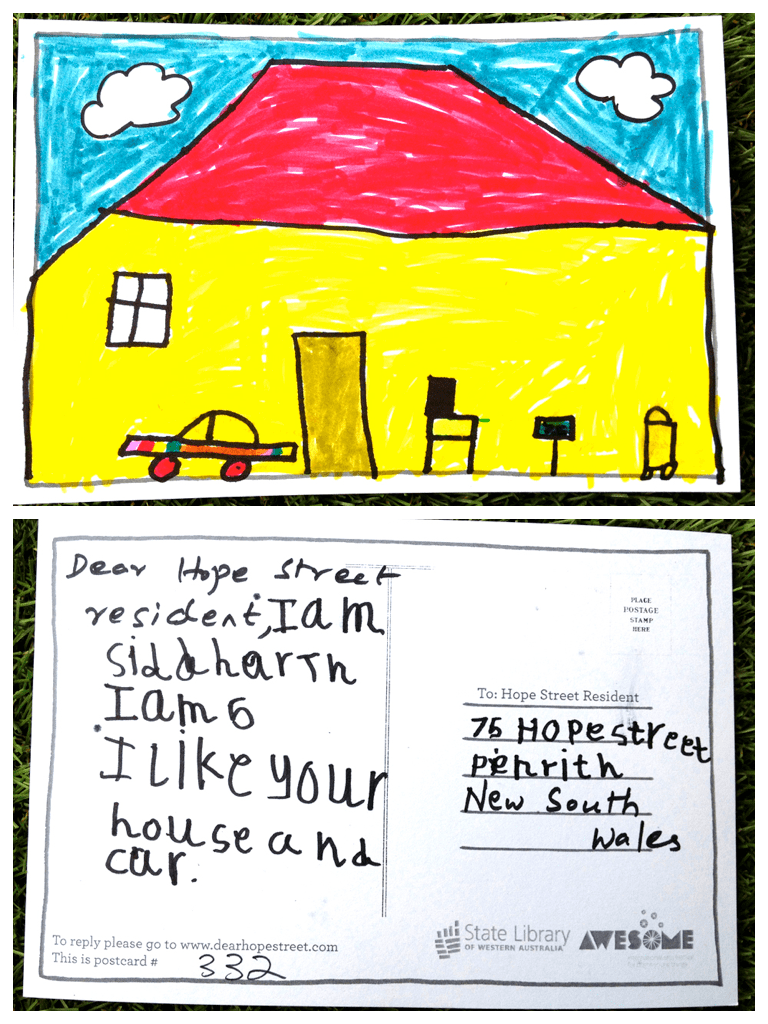 Dear Hope Street
resident, I am
Siddharth
I am 6
I like your
house and
car.
PLACE
POSTAGE
STAMP
HERE
To: Hope Street Resident
75 Hope street
Penrith
New South
Wales
To reply please go to www.dearhopestreet.com
This is postcard # 332
State Library
OF WESTERN AUSTRALIA
AWESOME